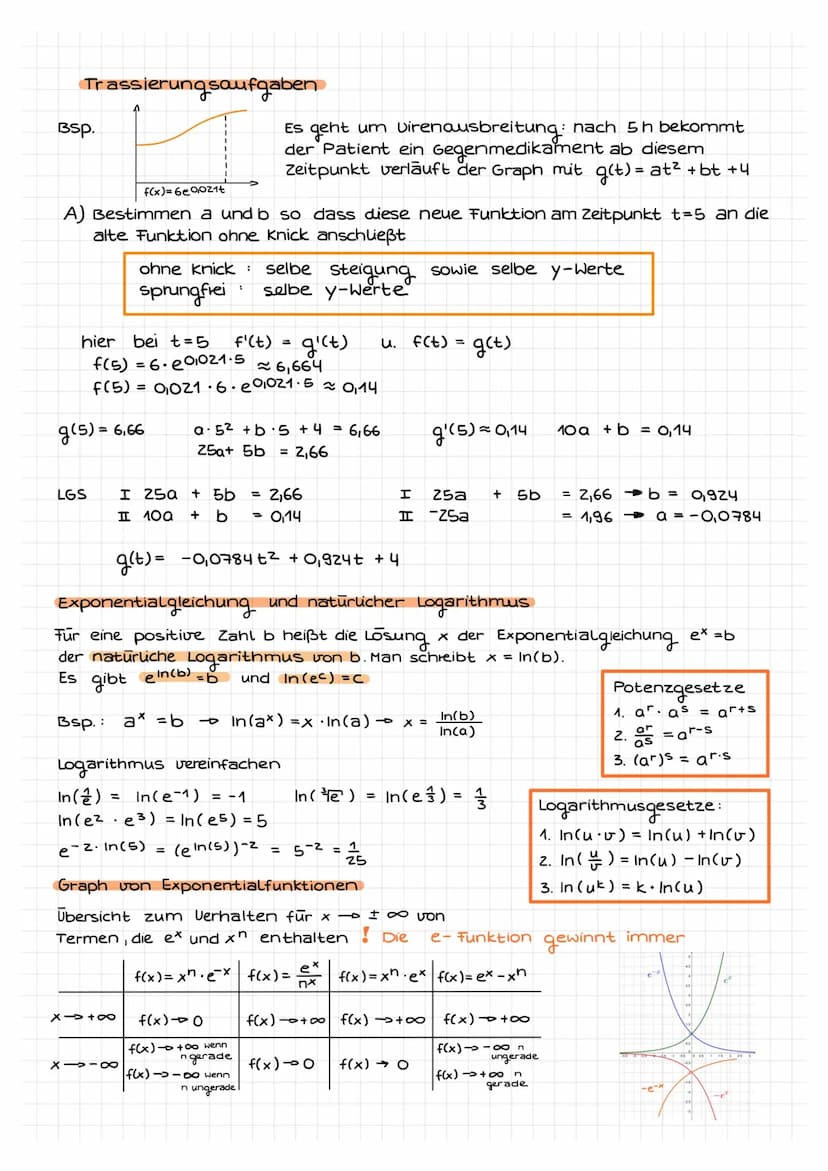 Trassierungsaufgaben
Bsp.
f(x)=6e^0,021t
Es geht um Virenausbreitung: nach 5h bekommt
der Patient ein Gegenmedikament ab diesem
Zeitpunkt verläuft der Graph mit g(t) = at² + bt + 4
A) Bestimmen a und b so dass diese neue Funktion am Zeitpunkt t=5 an die
alte Funktion ohne Knick anschließt
ohne Knick : selbe Steigung sowie selbe y-Werte
sprungfrei : selbe y-Werte
hier bei t=5 f'(t) = g'(t) u. f(t) = g(t)
f(5) = 6·e^0,021·5 ≈ 6,664
f(5) = 0,021·6·e^0,021·5 ≈ 0,14
g(5) = 6,66 a·5² + b·5 + 4 = 6,66 g'(5) ≈ 0,14 10a + b = 0,14
25a + 5b = 2,66
LGS I 25a + 5b = 2,66 I 25a + 5b = 2,66 → b = 0,924
II 10a + b = 0,14 II -25a = 1,96 → a = -0,0784
g(t) = -0,0784t² + 0,924t + 4
Exponentialgleichung und natürlicher Logarithmus
Für eine positive Zahl b heißt die Lösung x der Exponentialgleichung e^x = b
der natürliche Logarithmus von b. Man schreibt x = ln(b).
Es gibt e^ln(b) = b und ln(e^c) = c
Bsp.: a^x = b → ln(a^x) = x·ln(a) → x = ln(b)/ln(a)
Potenzgesetze
1. a^r · a^s = a^r+s
2. a^r/a^s = a^r-s
3. (a^r)^s = a^r·s
Logarithmus vereinfachen
ln(1/e) = ln(e^-1) = -1 ln(³√e) = ln(e^1/3) = 1/3
ln(e² · e³) = ln(e⁵) = 5
e^-2·ln(5) = (e^ln(5))^-2 = 5^-2 = 1/25
Logarithmusgesetze:
1. ln(u·v) = ln(u) + ln(v)
2. ln(u/v) = ln(u) - ln(v)
3. ln(u^k) = k·ln(u)
Graph von Exponentialfunktionen
Übersicht zum Verhalten für x → ± ∞ von
Termen, die e^x und x^n enthalten ! Die e-Funktion gewinnt immer
f(x) = x^n · e^-x f(x) = e^x/n^x f(x) = x^n · e^x f(x) = e^x - x^n
x → +∞ f(x) → 0 f(x) → +∞ f(x) → +∞ f(x) → +∞
x → -∞ f(x) → +∞ wenn n gerade f(x) → -∞ wenn n ungerade f(x) → 0 f(x) → 0 f(x) → -∞ n ungerade f(x) → +∞ n gerade
e^-x
e^x
-e^-x
-e^x